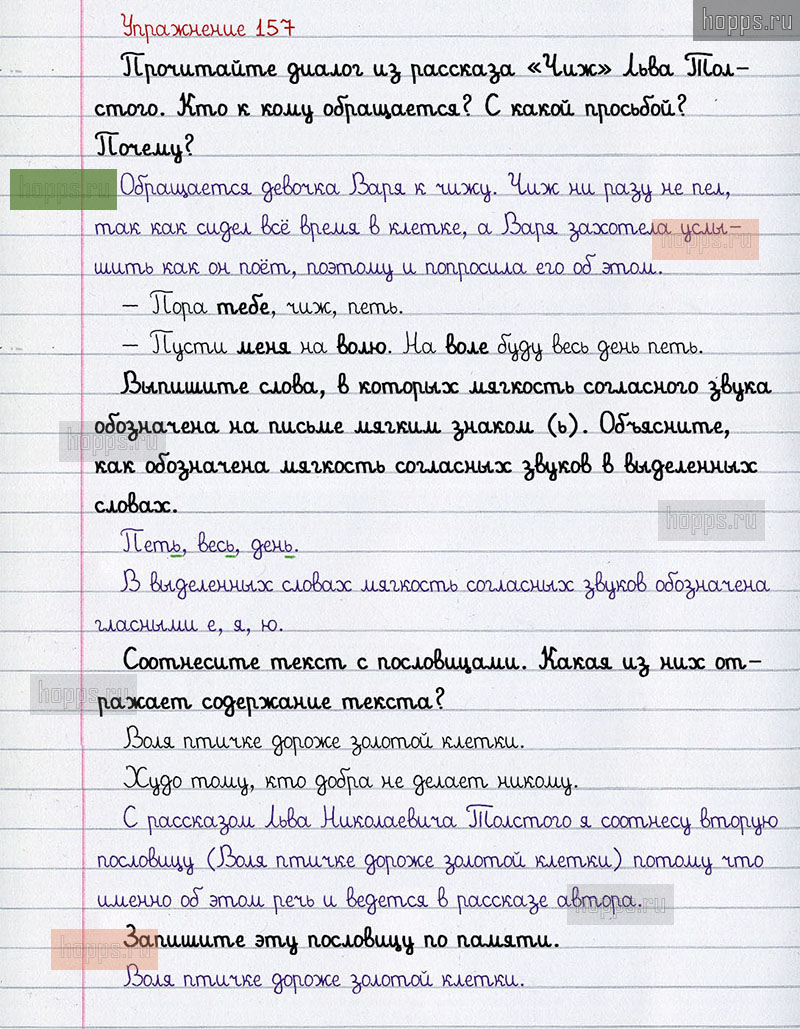 hopps.ru
Упражнение 157
Прочитайте диалог из рассказа «Чиж» Льва Тол-
стого. Кто к кому обращается? С какой просьбой?
Почему?
hopps.ru
Обращается девочка Варя к чижу. Чиж ни разу не пел,
так как сидел всё время в клетке, а Варя захотела услы-
hopps.ru
шить как он поёт, поэтому и попросила его об этом.
– Пора тебе, чиж, петь.
– Пусти меня на волю. На воле буду весь день петь.
Выпишите слова, в которых мягкость согласного звука
обозначена на письме мягким знаком (ь). Объясните,
hopps.ru
как обозначена мягкость согласных звуков в выделенных
словах.
hopps.ru
Петь, весь, день.
В выделенных словах мягкость согласных звуков обозначена
гласными е, я, ю.
Соотнесите текст с пословицами. Какая из них от-
ражает содержание текста?
hopps.ru
Воля птичке дороже золотой клетки.
Худо тому, кто добра не делает никому.
С рассказом Льва Николаевича Толстого я соотнесу вторую
пословицу (Воля птичке дороже золотой клетки) потому что
именно об этом речь и ведется в рассказе автора.
hopps.ru
Запишите эту пословицу по памяти.
hopps.ru
Воля птичке дороже золотой клетки.